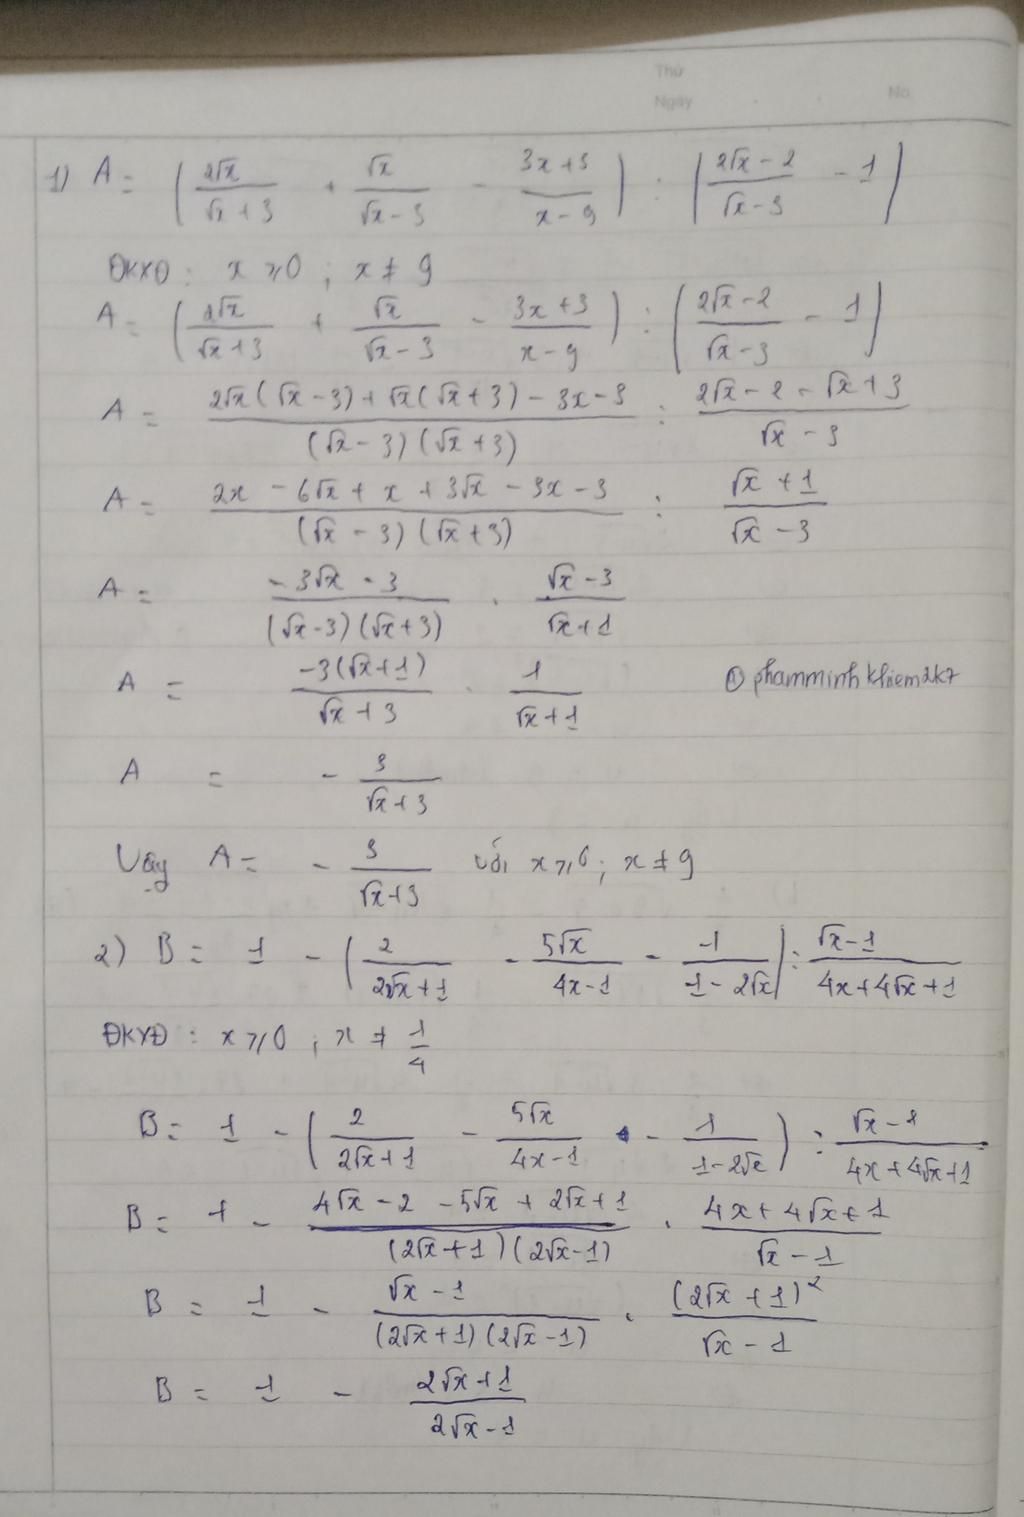 Thứ
Ngày No
1) A = (2√x/(√x+3) + √x/(√x-3) - (3x+3)/(x-9)) : ((2√x-2)/(√x-3) - 1)
ĐKXĐ: x ≥ 0 ; x ≠ 9
A = (2√x/(√x+3) + √x/(√x-3) - (3x+3)/(x-9)) : ((2√x-2)/(√x-3) - 1)
A = (2√x(√x-3)+√x(√x+3)-3x-3)/((√x-3)(√x+3)) : (2√x-2-√x+3)/(√x-3)
A = (2x-6√x+x+3√x-3x-3)/((√x-3)(√x+3)) : (√x+1)/(√x-3)
A = (-3√x-3)/((√x-3)(√x+3)) . (√x-3)/(√x+1)
A = -3(√x+1)/(√x+3) . 1/(√x+1) @phamminhkhiem2k7
A = - 3/(√x+3)
Vậy A = - 3/(√x+3) với x ≥ 0 ; x ≠ 9
2) B = 1 - (2/(2√x+1) - 5√x/(4x-1) - 1/(1-2√x)) : (√x-1)/(4x+4√x+1)
ĐKXĐ : x ≥ 0 ; x ≠ 1/4
B = 1 - (2/(2√x+1) - 5√x/(4x-1) - 1/(1-2√x)) : (√x-1)/(4x+4√x+1)
B = 1 - (4√x-2-5√x+2√x+1)/((2√x+1)(2√x-1)) . (4x+4√x+1)/(√x-1)
B = 1 - (√x-1)/((2√x+1)(2√x-1)) . (2√x+1)²/(√x-1)
B = 1 - (2√x+1)/(2√x-1)